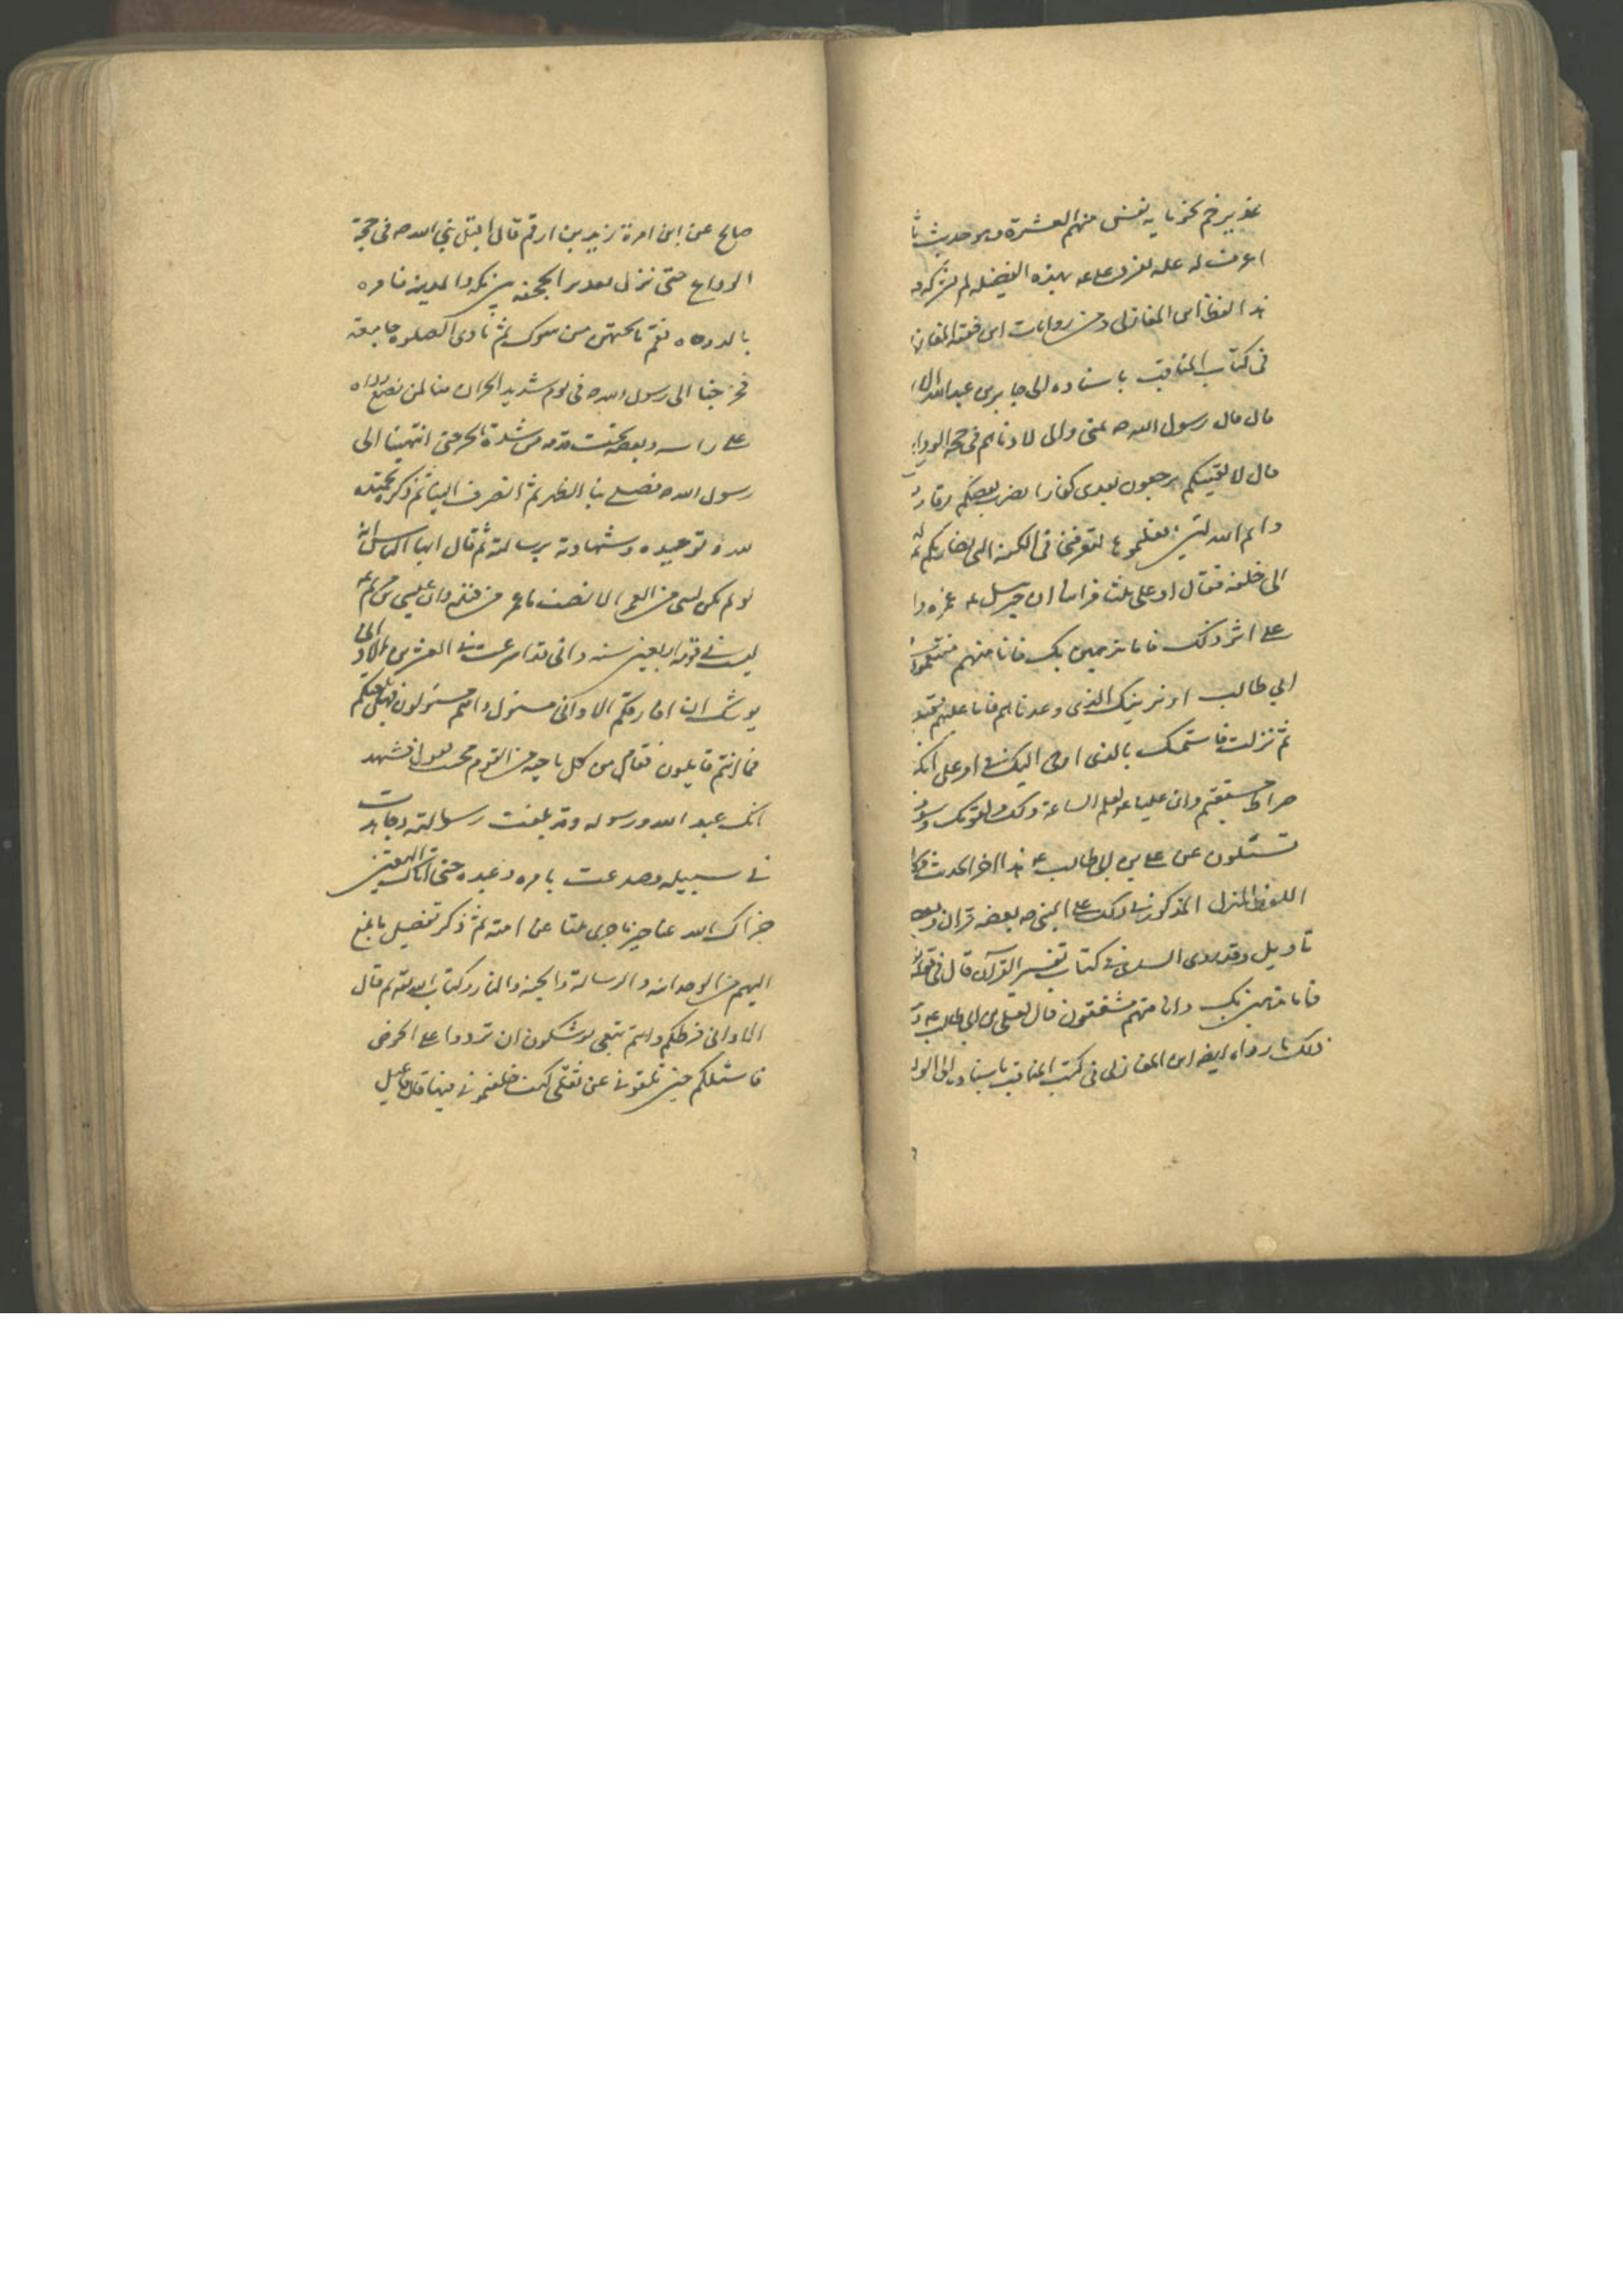 غدير خم نحو ماية نفس منهم العشرة وهو حديث ثا
اعرف له علة تفرد علي ع بهذه الفضيلة لم يشركه
هذا لفظ ابن المغازلي ومن روايات ابن فقيه المغازلي
في كتاب المناقب باسناده الى جابر بن عبد الله الا
قال قال رسول الله ص بمنى واني لادناهم في حجة الوداع
قال لا لفينكم ترجعون بعدي كفارا يضرب بعضكم رقاب
وايم الله لئن فعلتموها لتعرفني في الكتيبة التي تضاربكم ثم
الى خلفه فقال او علي ثلثا فراينا ان جبرئيل ع غمزه وا
على اثر ذلك فاما نذهبن بك فانا منهم منتقمون
ابي طالب او نرينك الذي وعدناهم فانا عليهم مقتد
ثم نزلت فاستمسك بالذي اوحي اليك في امر علي انك
صراط مستقيم وان عليا ع لعلم للساعة ولك ولقومك وسوف
تسئلون عن علي بن ابي طالب ع هذا اخر الحديث فكا
اللفظ المنزل المذكور في ذلك على النبي ص بعضه قران وبعضه
تاويل وقد روى السدي في كتاب تفسير القرآن قال في قوله
فاما نذهبن بك وانا منهم منتقمون قال بعلي بن ابي طالب ع
ذلك ما رواه ايضا ابن المغازلي في كتاب المناقب باسناده الى الوليد
صالح عن ابن امراة زيد بن ارقم قال اقبل نبي الله ص في حجة
الوداع حتى نزل بغدير الجحفة بين مكة والمدينة فامر
بالدوحات فقم ما تحتهن من شوك ثم نادى الصلوة جامعة
فخرجنا الى رسول الله ص في يوم شديد الحر ان منا لمن يضع رداه
على راسه وبعضه تحت قدمه من شدة الحر حتى انتهينا الى
رسول الله ص فصلى بنا الظهر ثم انصرف الينا ثم ذكر تحميده
لله وتوحيده وشهادته برسالته ثم قال ايها الناس انه
لم يكن لنبي من العمر الا نصف ما عمر من قبله وان عيسى بن مريم ع
لبث في قومه اربعين سنة واني قد اسرعت في العشرين الا واني
يوشك ان افارقكم الا واني مسئول وانتم مسئولون فهل بلغتكم
فما ذا انتم قايلون فقام من كل ناحية من القوم مجيب يقول نشهد
انك عبد الله ورسوله وقد بلغت رسالته وجاهدت
في سبيله وصدعت بامره وعبده حتى اتاك اليقين
جزاك الله عنا خير ما جزى نبيا عن امته ثم ذكر تفصيل ما بلغ
اليهم من الوحدانية والرسالة والجنة والنار وكتاب الله ثم قال
الا واني فرطكم وانتم تبعي توشكون ان تردوا على الحوض
فاسئلكم حين تلقوني عن ثقلي كيف خلفتموني فيهما قال